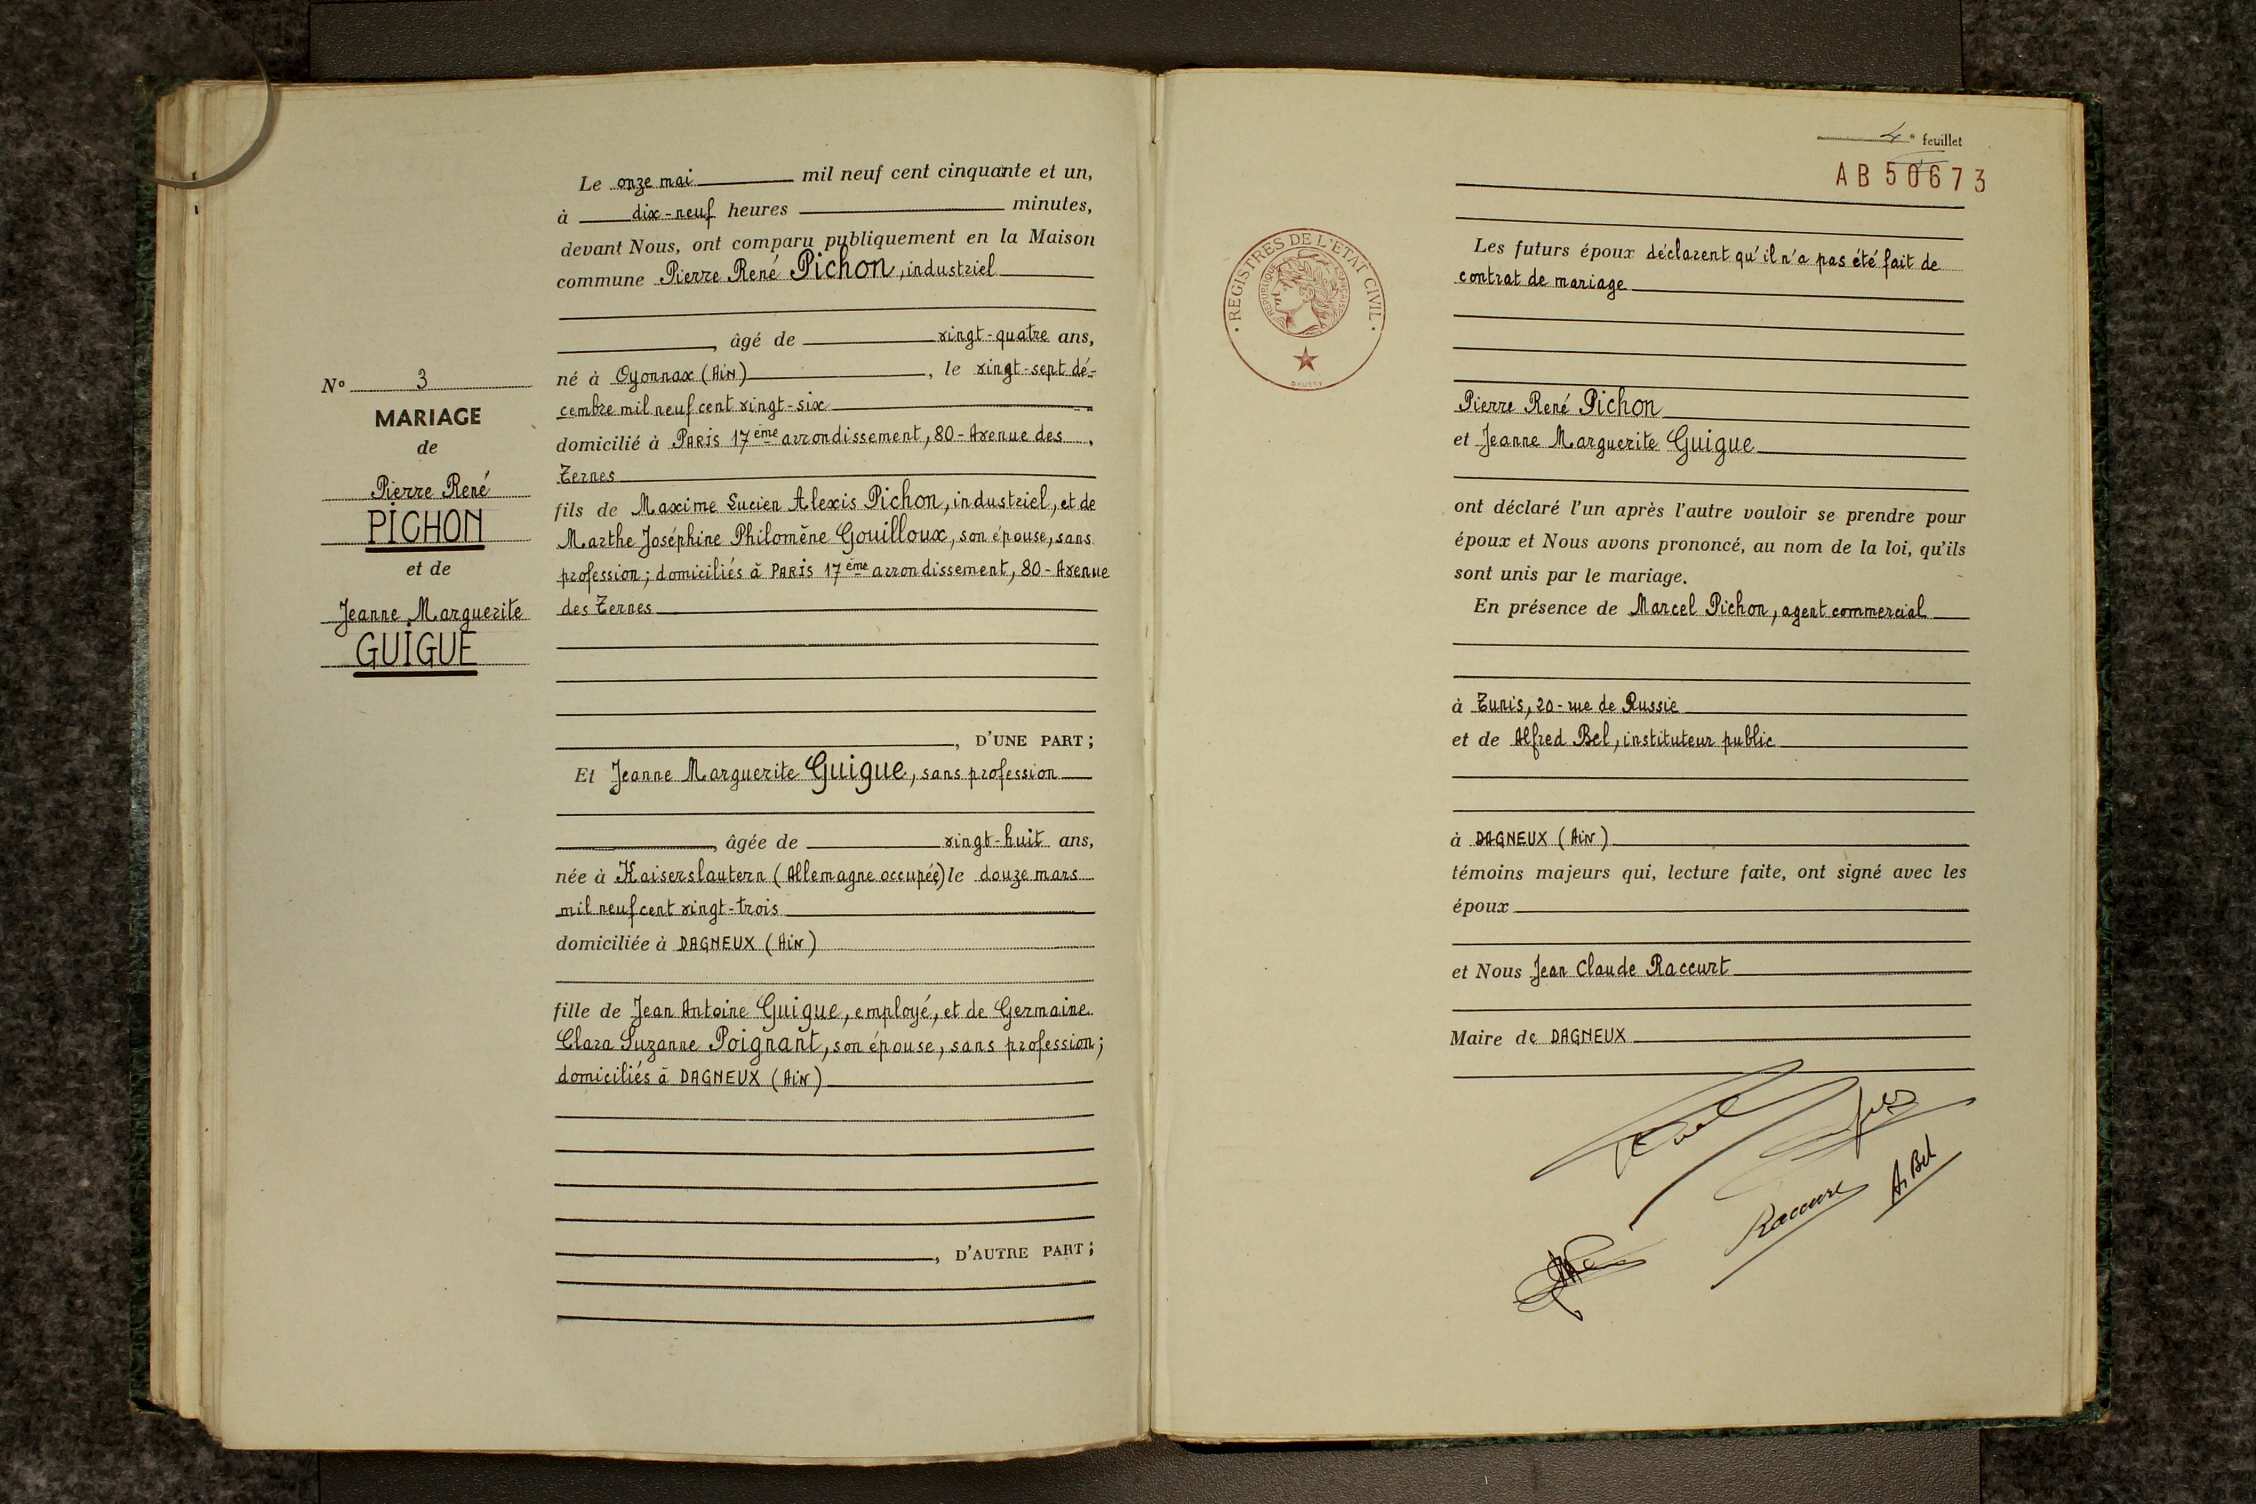 Le onze mai mil neuf cent cinquante et un,
à dix-neuf heures minutes,
devant Nous, ont comparu publiquement en la Maison
commune Pierre René Pichon, industriel
, âgé de vingt-quatre ans,
né à Oyonnax (Ain), le vingt-sept dé-
cembre mil neuf cent vingt-six
domicilié à PARIS 17ème arrondissement, 80 - Avenue des,
Ternes
fils de Maxime Lucien Alexis Pichon, industriel, et de
Marthe Joséphine Philomène Gouilloux, son épouse, sans
profession; domiciliés à PARIS 17ème arrondissement, 80 - Avenue
des Ternes
, D'UNE PART;
Et Jeanne Marguerite Guigue, sans profession
, âgée de vingt-huit ans,
née à Kaiserslautern (Allemagne occupée) le douze mars
mil neuf cent vingt-trois
domiciliée à DAGNEUX (Ain)
fille de Jean Antoine Guigue, employé, et de Germaine
Clara Suzanne Poignant, son épouse, sans profession;
domiciliés à DAGNEUX (Ain)
, D'AUTRE PART;
N° 3
MARIAGE
de
Pierre René
PICHON
et de
Jeanne Marguerite
GUIGUE
4e feuillet
AB50673
REGISTRES DE L'ETAT CIVIL
Les futurs époux déclarent qu'il n'a pas été fait de
contrat de mariage
Pierre René Pichon
et Jeanne Marguerite Guigue
ont déclaré l'un après l'autre vouloir se prendre pour
époux et Nous avons prononcé, au nom de la loi, qu'ils
sont unis par le mariage.
En présence de Marcel Pichon, agent commercial
à Tunis, 20 - rue de Russie
et de Alfred Bel, instituteur public
à DAGNEUX (Ain)
témoins majeurs qui, lecture faite, ont signé avec les
époux
et Nous Jean Claude Raccurt
Maire de DAGNEUX
A. Bel
Raccurt